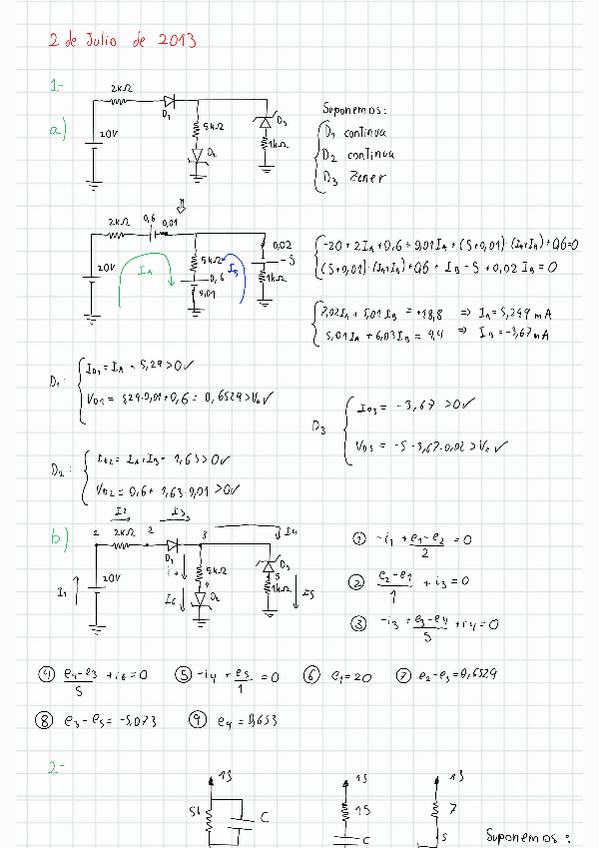 2 de Julio de 2013
1-
a)
2kΩ
D1
20V
5kΩ
D2
D3
1kΩ
Suponemos:
D1 continua
D2 continua
D3 Zener
2kΩ
0,6
0,01
20V
IA
5kΩ
0,6
0,01
IB
0,02
-5
1kΩ
-20+2IA+0,6+0,01IA+(5+0,01)·(IA+IB)+0,6=0
(5+0,01)·(IA+IB)+0,6+IB-5+0,02IB=0
7,02IA+5,01IB=+18,8 => IA=5,299 mA
5,01IA+6,03IB=4,4 => IB=-3,67 mA
D1:
ID1=IA=5,29>0✓
VD1=5,29·0,01+0,6=0,6529>Vγ✓
D3
ID3=-3,67>0✓
VD3=-5-3,67·0,02>Vz✓
D2:
ID2=IA+IB=1,63>0✓
VD2=0,6+1,63·0,01>0✓
b)
I2
I3
I4
2kΩ
2
3
D1
20V
I1
5kΩ
I6
D2
D3
5
1kΩ
I5
① -i1+e1-e2/2=0
② e2-e1/1+i3=0
③ -i3+e3-e4/5+i4=0
④ e4-e3/5+i6=0 ⑤ -i4+e5/1=0 ⑥ e1=20 ⑦ e2-e3=0,6529
⑧ e3-e5=-5,073 ⑨ e4=0,653
2-
13
C
13
15
C
13
7
5
Suponemos: